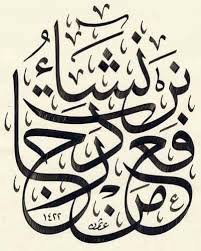 نرفع درجات من نشاء
١٤٢٢